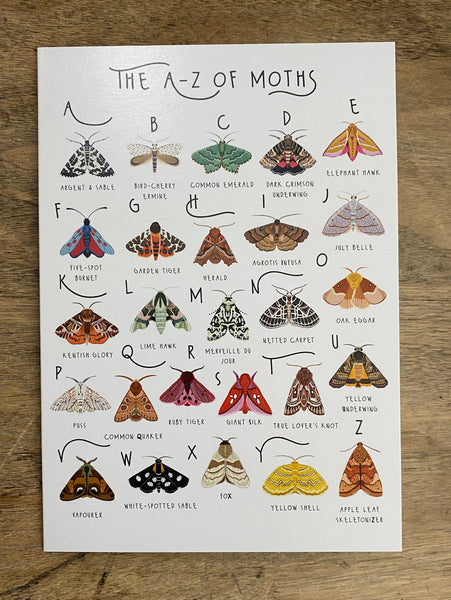 THE A-Z OF MOTHS
A
B
C
D
E
ARGENT & SABLE
BIRD-CHERRY
ERMINE
COMMON EMERALD
DARK CRIMSON
UNDERWING
ELEPHANT HAWK
F
G
H
I
J
FIVE-SPOT
BURNET
GARDEN TIGER
HERALD
AGROTIS INFUSA
JULY BELLE
K
L
M
N
O
KENTISH GLORY
LIME HAWK
MERVEILLE DU
JOUR
NETTED CARPET
OAK EGGAR
P
Q
R
S
T
U
PUSS
COMMON QUAKER
RUBY TIGER
GIANT SILK
TRUE LOVER'S KNOT
YELLOW
UNDERWING
V
W
X
Y
Z
VAPOURER
WHITE-SPOTTED SABLE
FOX
YELLOW SHELL
APPLE LEAF
SKELETONIZER